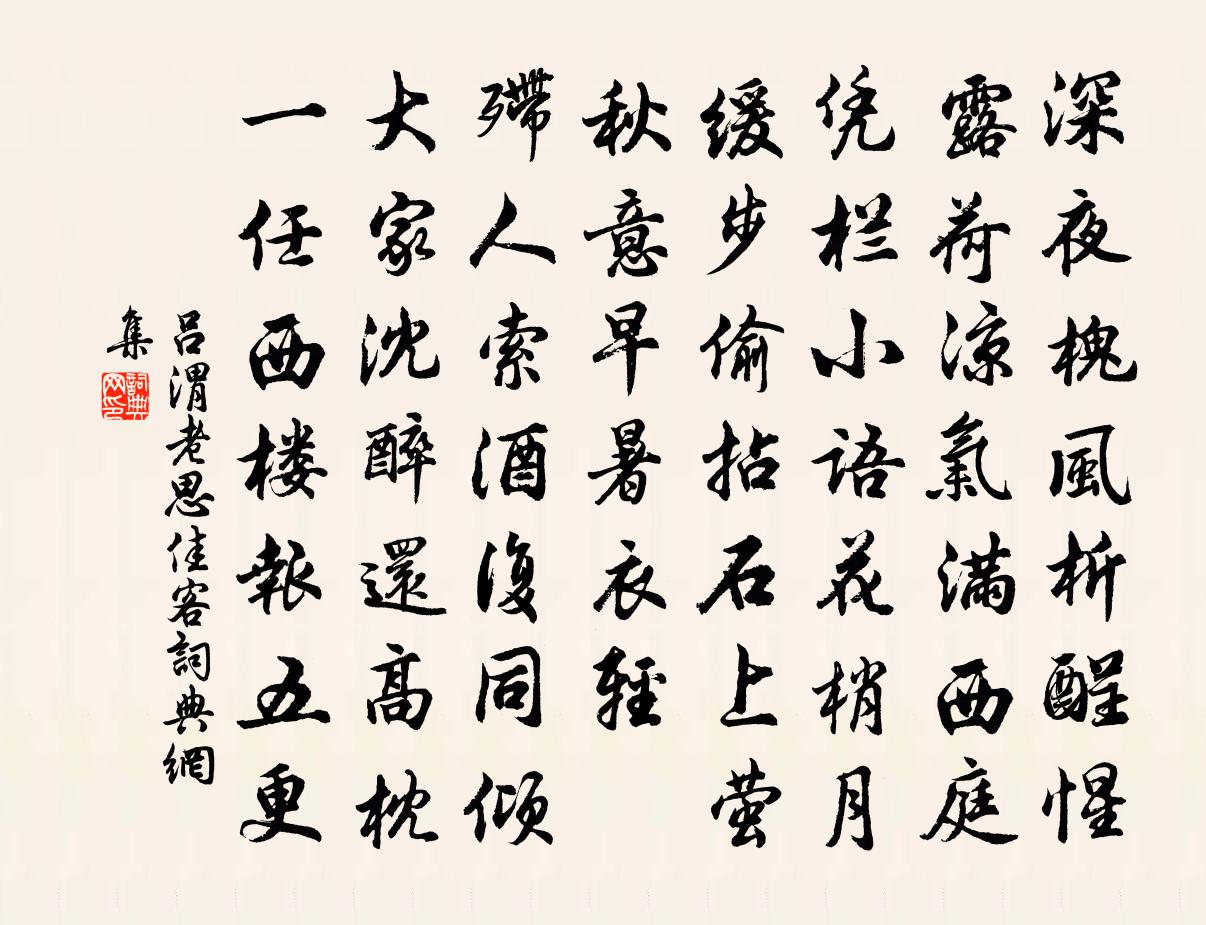 深夜槐風析酲惺
露荷涼氣滿西庭
凭栏小语花梢月
缓步偷拈石上萤
秋意早暑衣輕
殢人索酒復同倾
大家沈醉還高枕
一任西楼報五更
吕渭老思佳客詞典網
集
詞典
网印